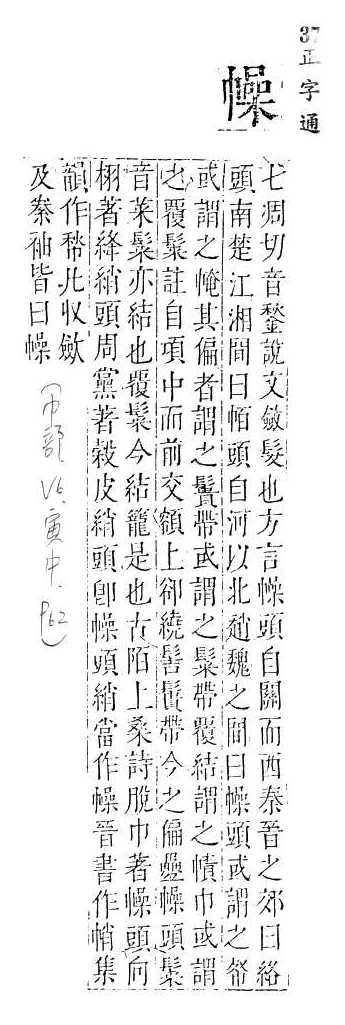 37 正字通
幧
七凋切音鍫說文斂髮也方言幧頭自關而西秦晉之郊曰絡
頭南楚江湘間曰帞頭自河以北趙魏之間曰幧頭或謂之帤
或謂之㡋其偏者謂之鬢帶或謂之髤帶覆結謂之幘巾或謂
之覆髤註自項中而前交額上郤繞髻鬢帶今之偏疊幧頭髤
音菜髤亦結也覆髤今結籠是也古陌上桑詩脫巾著幧頭向
栩著絳綃頭周黨著穀皮綃頭卽幧頭綃當作幧晉書作帩集
韻作㡑非収斂
及秦袖皆曰幧
(巾部 寅中 P62